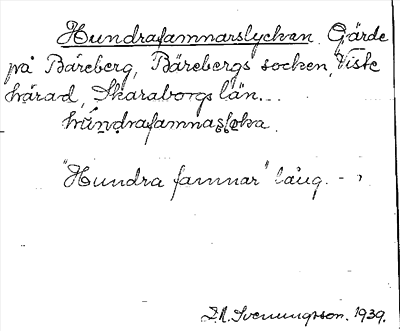 Hundrafamnarslyckan. Gärde
på Båreberg, Bärebergs socken, Viste
härad, Skaraborgs län...
hu̇ndrafamnasløka.
"Hundra famnar" lång. -
Svenungsson. 1939.